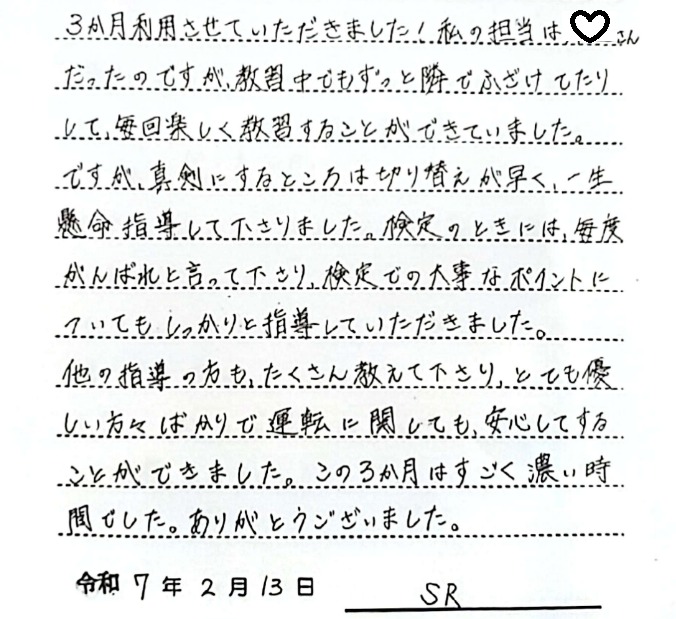 3か月利用させていただきました！私の担当は、♡さん
だったのですが、教習中でもずっと隣でふざけてたり
して、毎回楽しく教習することができていました。
ですが、真剣にするところは切り替えが早く、一生
懸命指導して下さりました。検定のときには、毎度
がんばれと言って下さり、検定での大事なポイントに
ついてもしっかりと指導していただきました。
他の指導の方も、たくさん教えて下さり、とても優
しい方々ばかりで運転に関しても、安心してする
ことができました。この3か月はすごく濃い時
間でした。ありがとうございました。
令和7年2月13日 SR